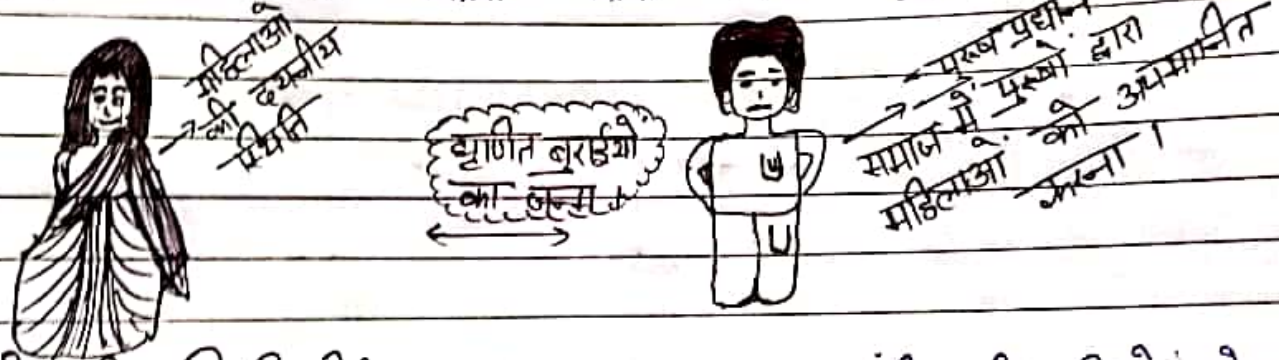 महिलाओ
की दयनीय
स्थिति
घृणित बुराईयो
का जन्म
पुरुष प्रधान
समाज में पुरुषों द्वारा
महिलाओं को अपमानित
करना।